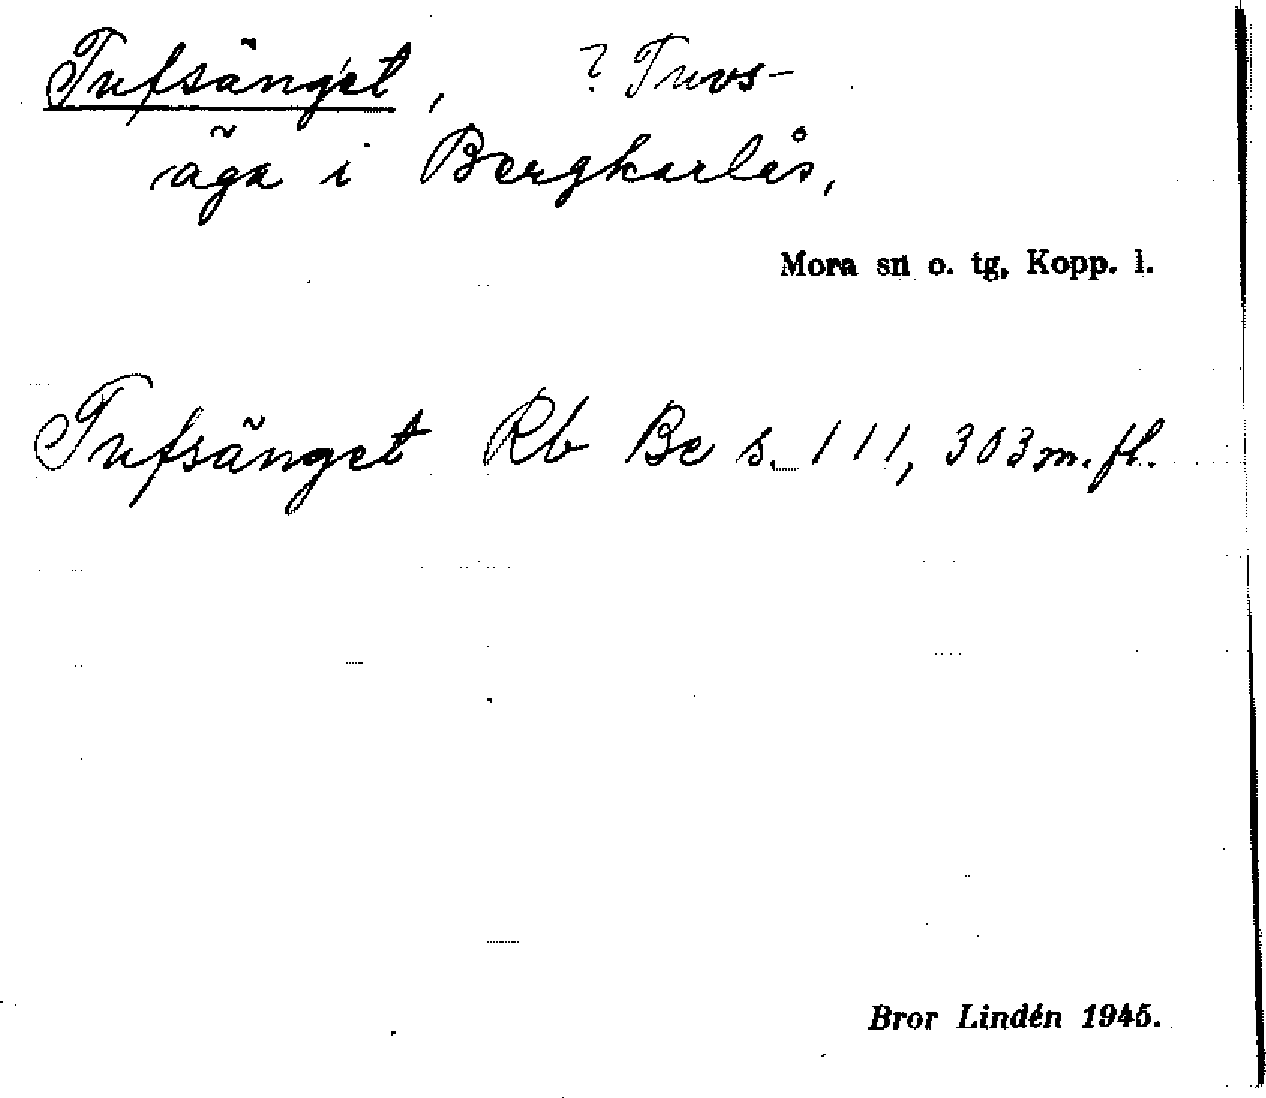 Tufsänget, ? Tuvs-
äga i Bergkarlås,
Mora sn o. tg, Kopp. l.
Tufsänget Rb Be s. 111, 303 m. fl.
Bror Lindén 1945.